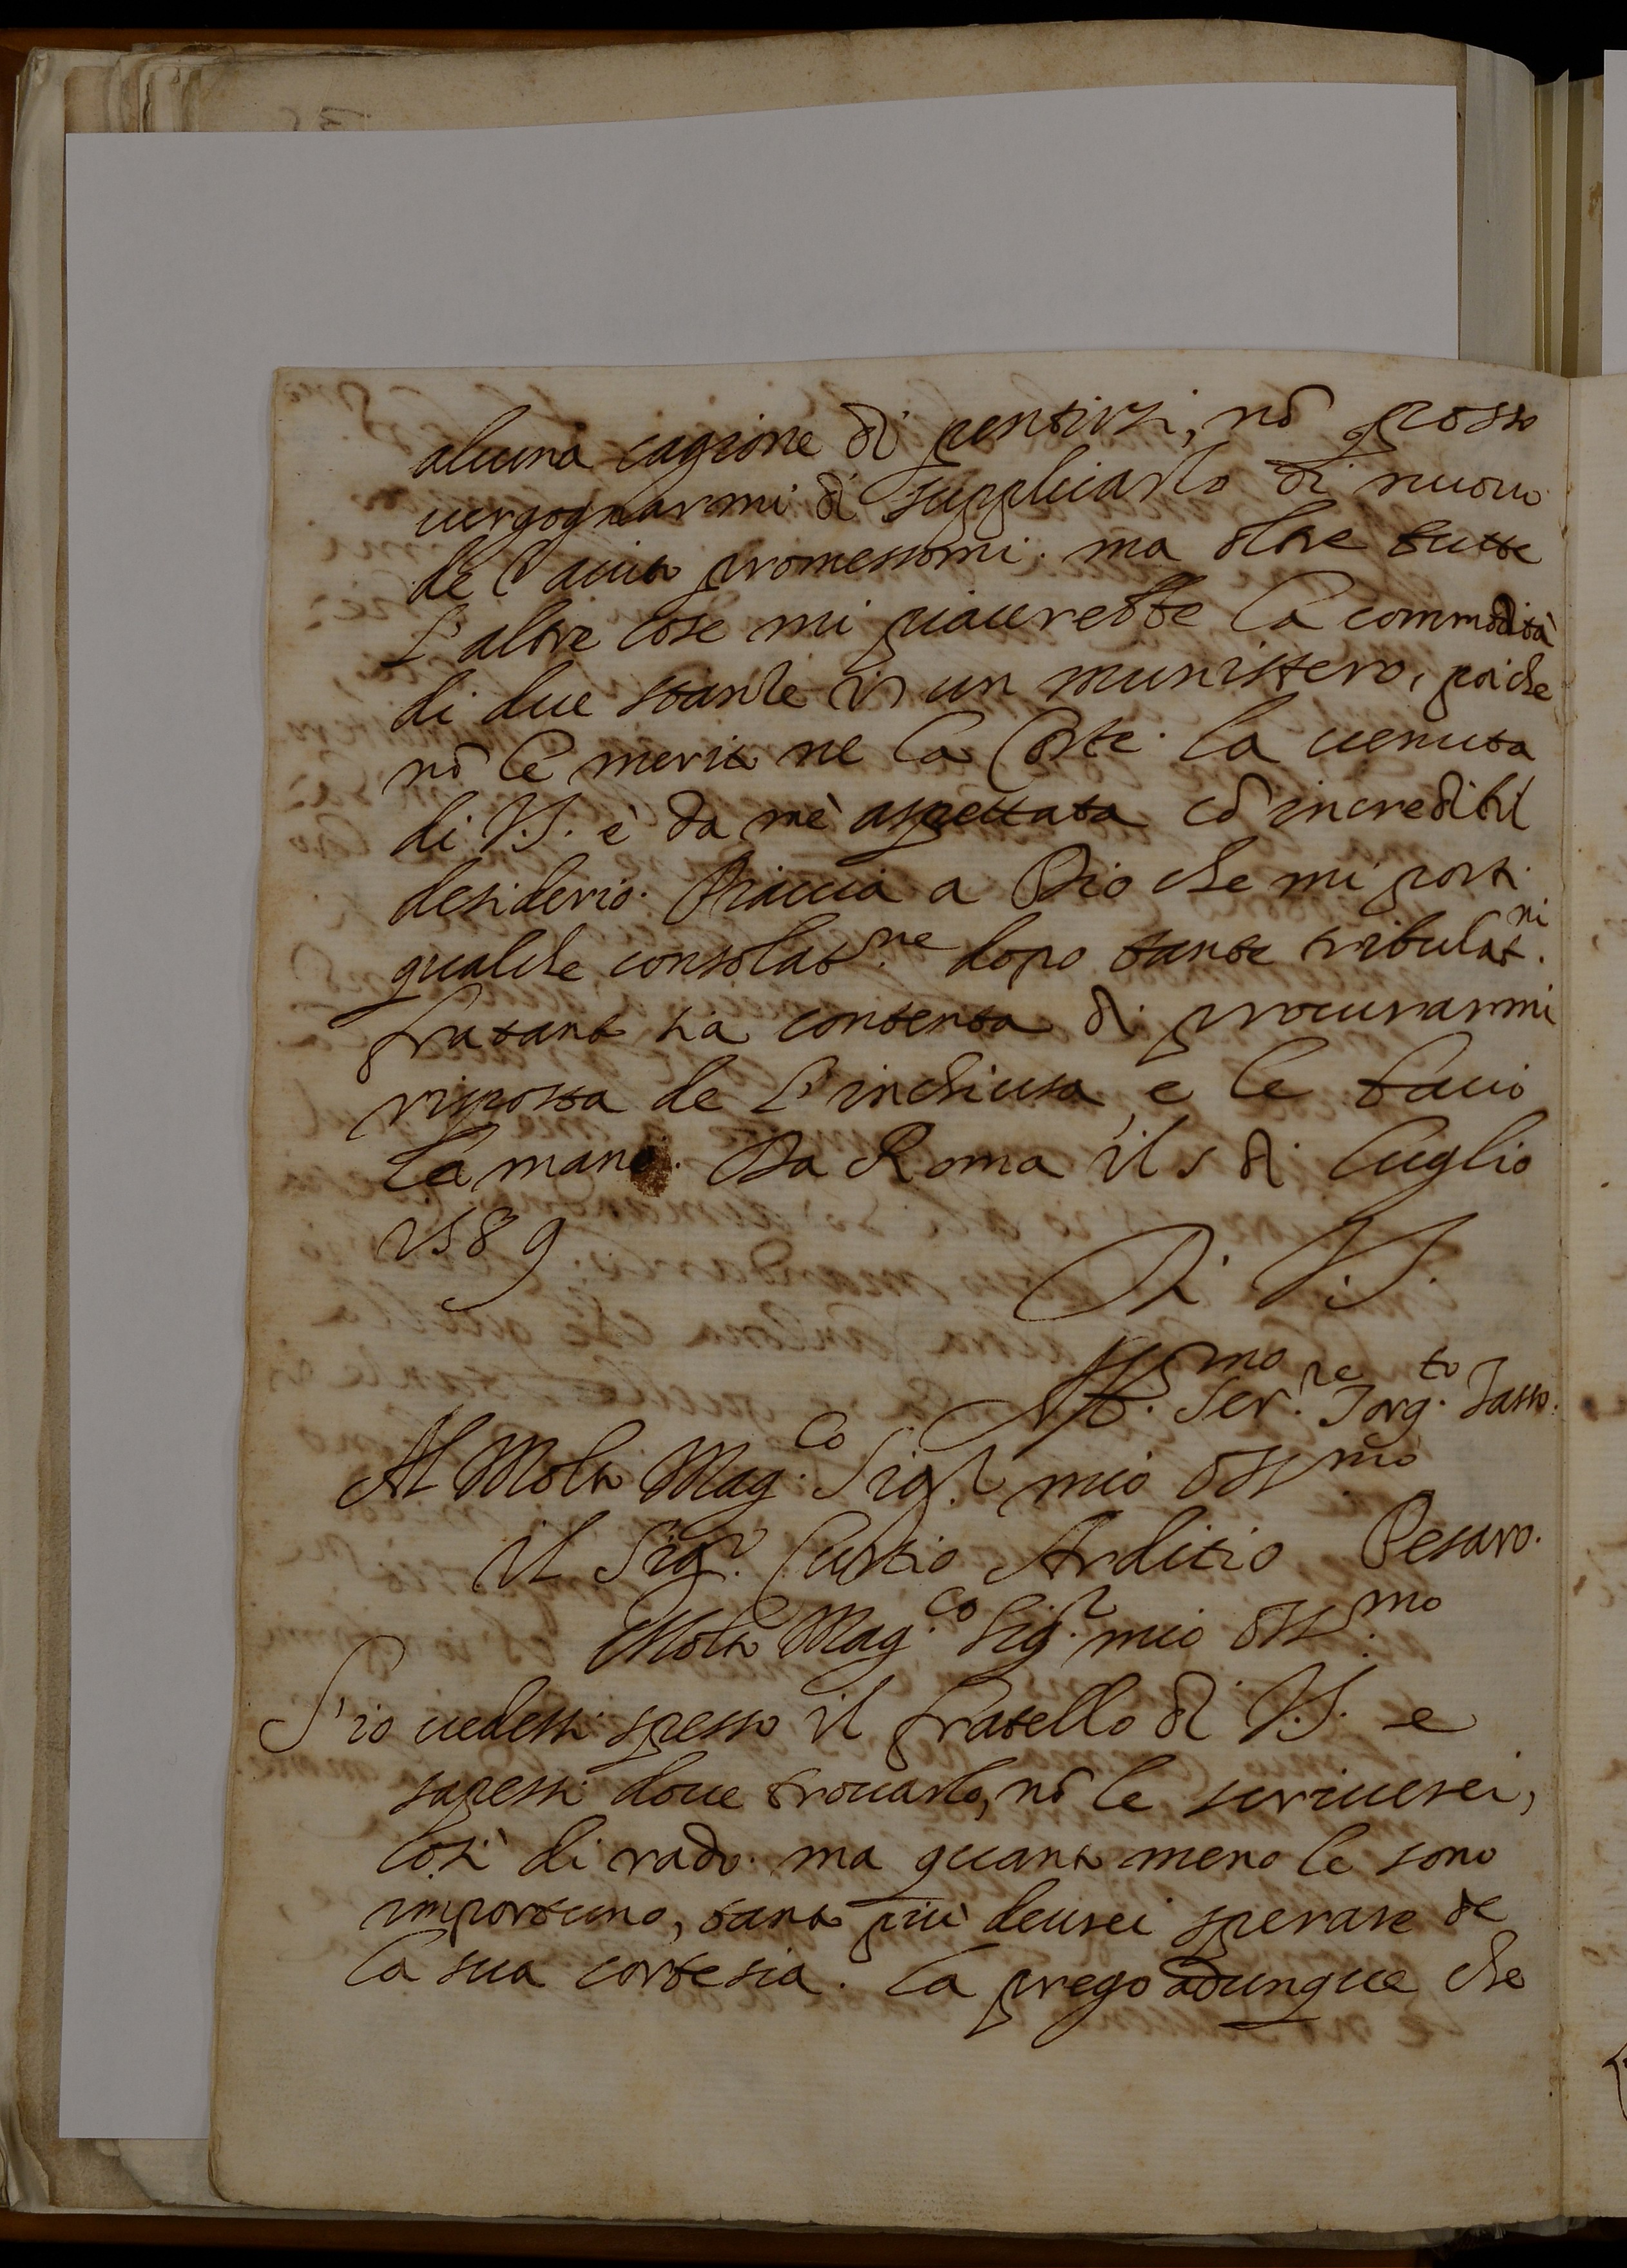 alcuna cagione di pentirsi, nō posso
uergognarmi di supplicarlo di nuouo
de l'aiuto promessomi. ma oltre tutte
l'altre cose mi piacerebbe la commodità
di due stanze in un munistero, poiche
nō le merito ne la Corte. la uenuta
di V.S. è da mè aspettata cō incredibil
desiderio. Piaccia a Dio che mi porti
qualche consolat.ne dopo tante tribulat.ni
fratanto sia contenta di procurarmi
risposta de l'inchiusa, e le bacio
la mano. Da Roma il 5 di luglio
1589
Di V.S.
Aff.mo Ser.re Torq.to Tasso.
Al Molto Mag.co Sig.r mio oss.mo
il Sig.r Curtio Arditio Pesaro.
Molto Mag.co Sig.r mio oss.mo
S'io uedessi spesso il fratello di V.S. e
sapessi doue trouarlo, nō le scriuerei,
così di rado. ma quanto meno le sono
importuno, tanto più deurei sperare de
la sua cortesia. la prego adunque che